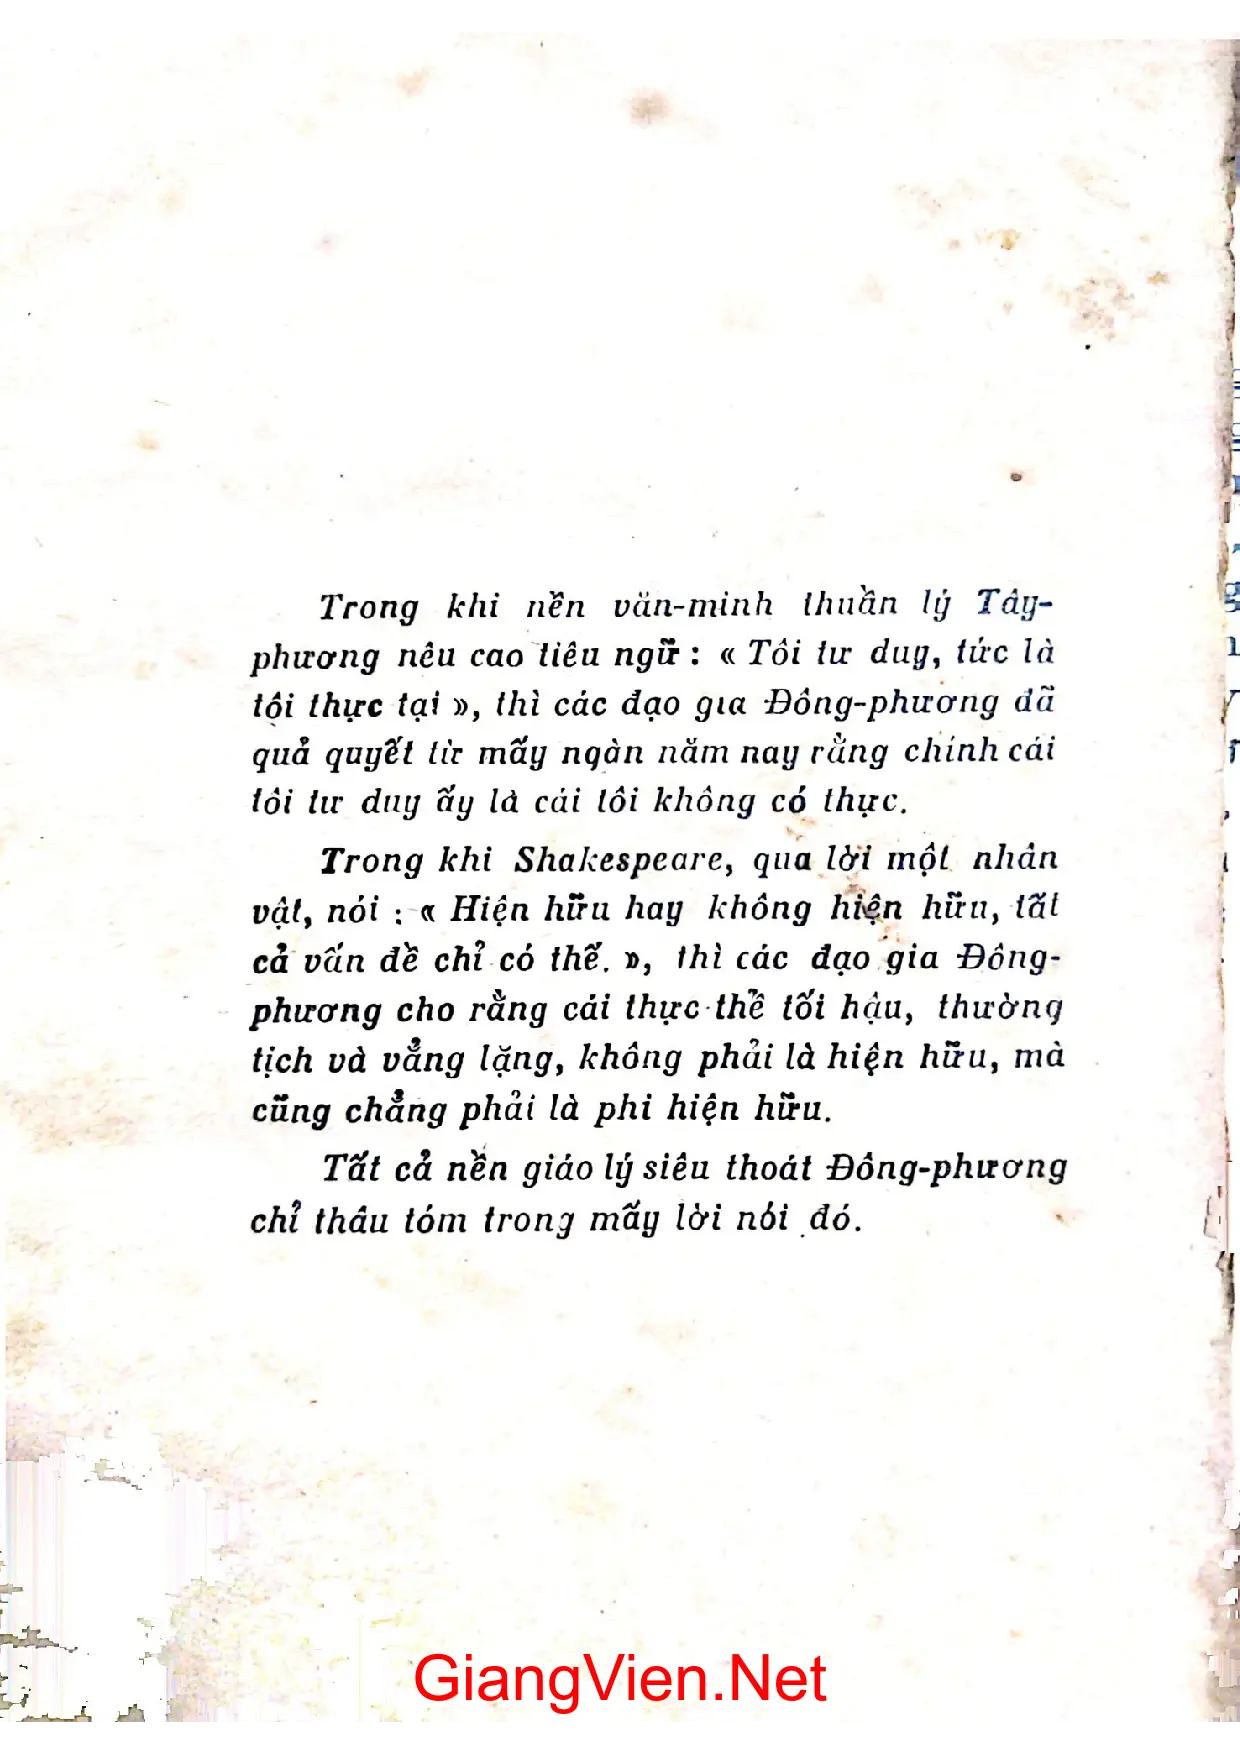 Trong khi nền văn-minh thuần lý Tây-
phương nêu cao tiêu ngữ : « Tôi tư duy, tức là
tôi thực tại », thì các đạo gia Đông-phương đã
quả quyết từ mấy ngàn năm nay rằng chính cái
tôi tư duy ấy là cái tôi không có thực.
Trong khi Shakespeare, qua lời một nhân
vật, nói : « Hiện hữu hay không hiện hữu, tất
cả vấn đề chỉ có thế. », thì các đạo gia Đông-
phương cho rằng cái thực thể tối hậu, thường
tịch và vẳng lặng, không phải là hiện hữu, mà
cũng chẳng phải là phi hiện hữu.
Tất cả nền giáo lý siêu thoát Đông-phương
chỉ thâu tóm trong mấy lời nói đó.
GiangVien.Net